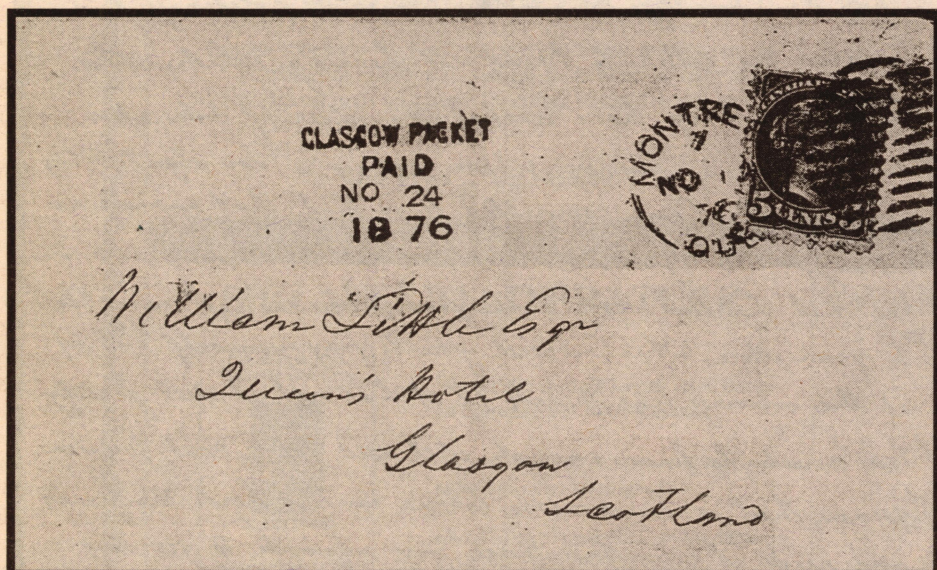 GLASGOW PACKET
PAID
NO 24
18 76
MONTRE
1
NO 1
76
QUE
5 CENTS 5
William Little Esqr
Queen's Hotel
Glasgow
Scotland